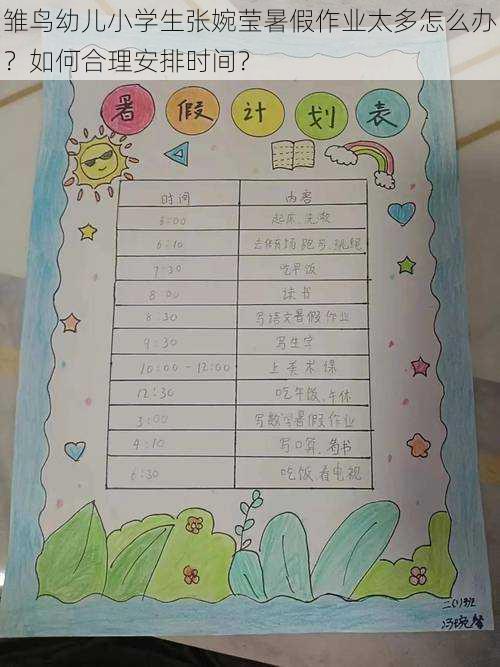 雏鸟幼儿小学生张婉莹暑假作业太多怎么办
？如何合理安排时间？
暑假计划表
时间 内容
6:00 起床、洗漱
6:10 去操场跑步、跳绳
7:30 吃早饭
8:00 读书
8:30 写语文暑假作业
9:30 写生字
10:00-12:00 上美术课
12:30 吃午饭、午休
3:00 写数学暑假作业
4:10 写口算、看书
6:30 吃饭、看电视
二(1)班